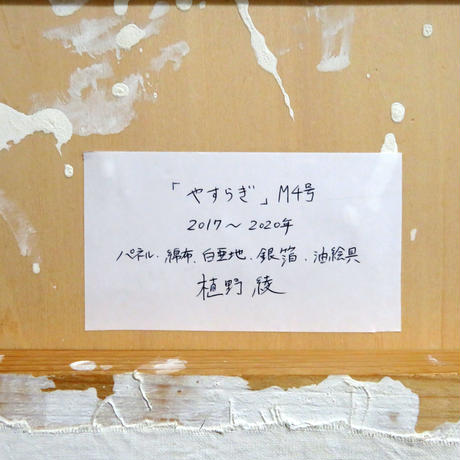 「やすらぎ」M4号
2017〜2020年
パネル.綿布.白亜地.銀箔.油絵具
植野 綾